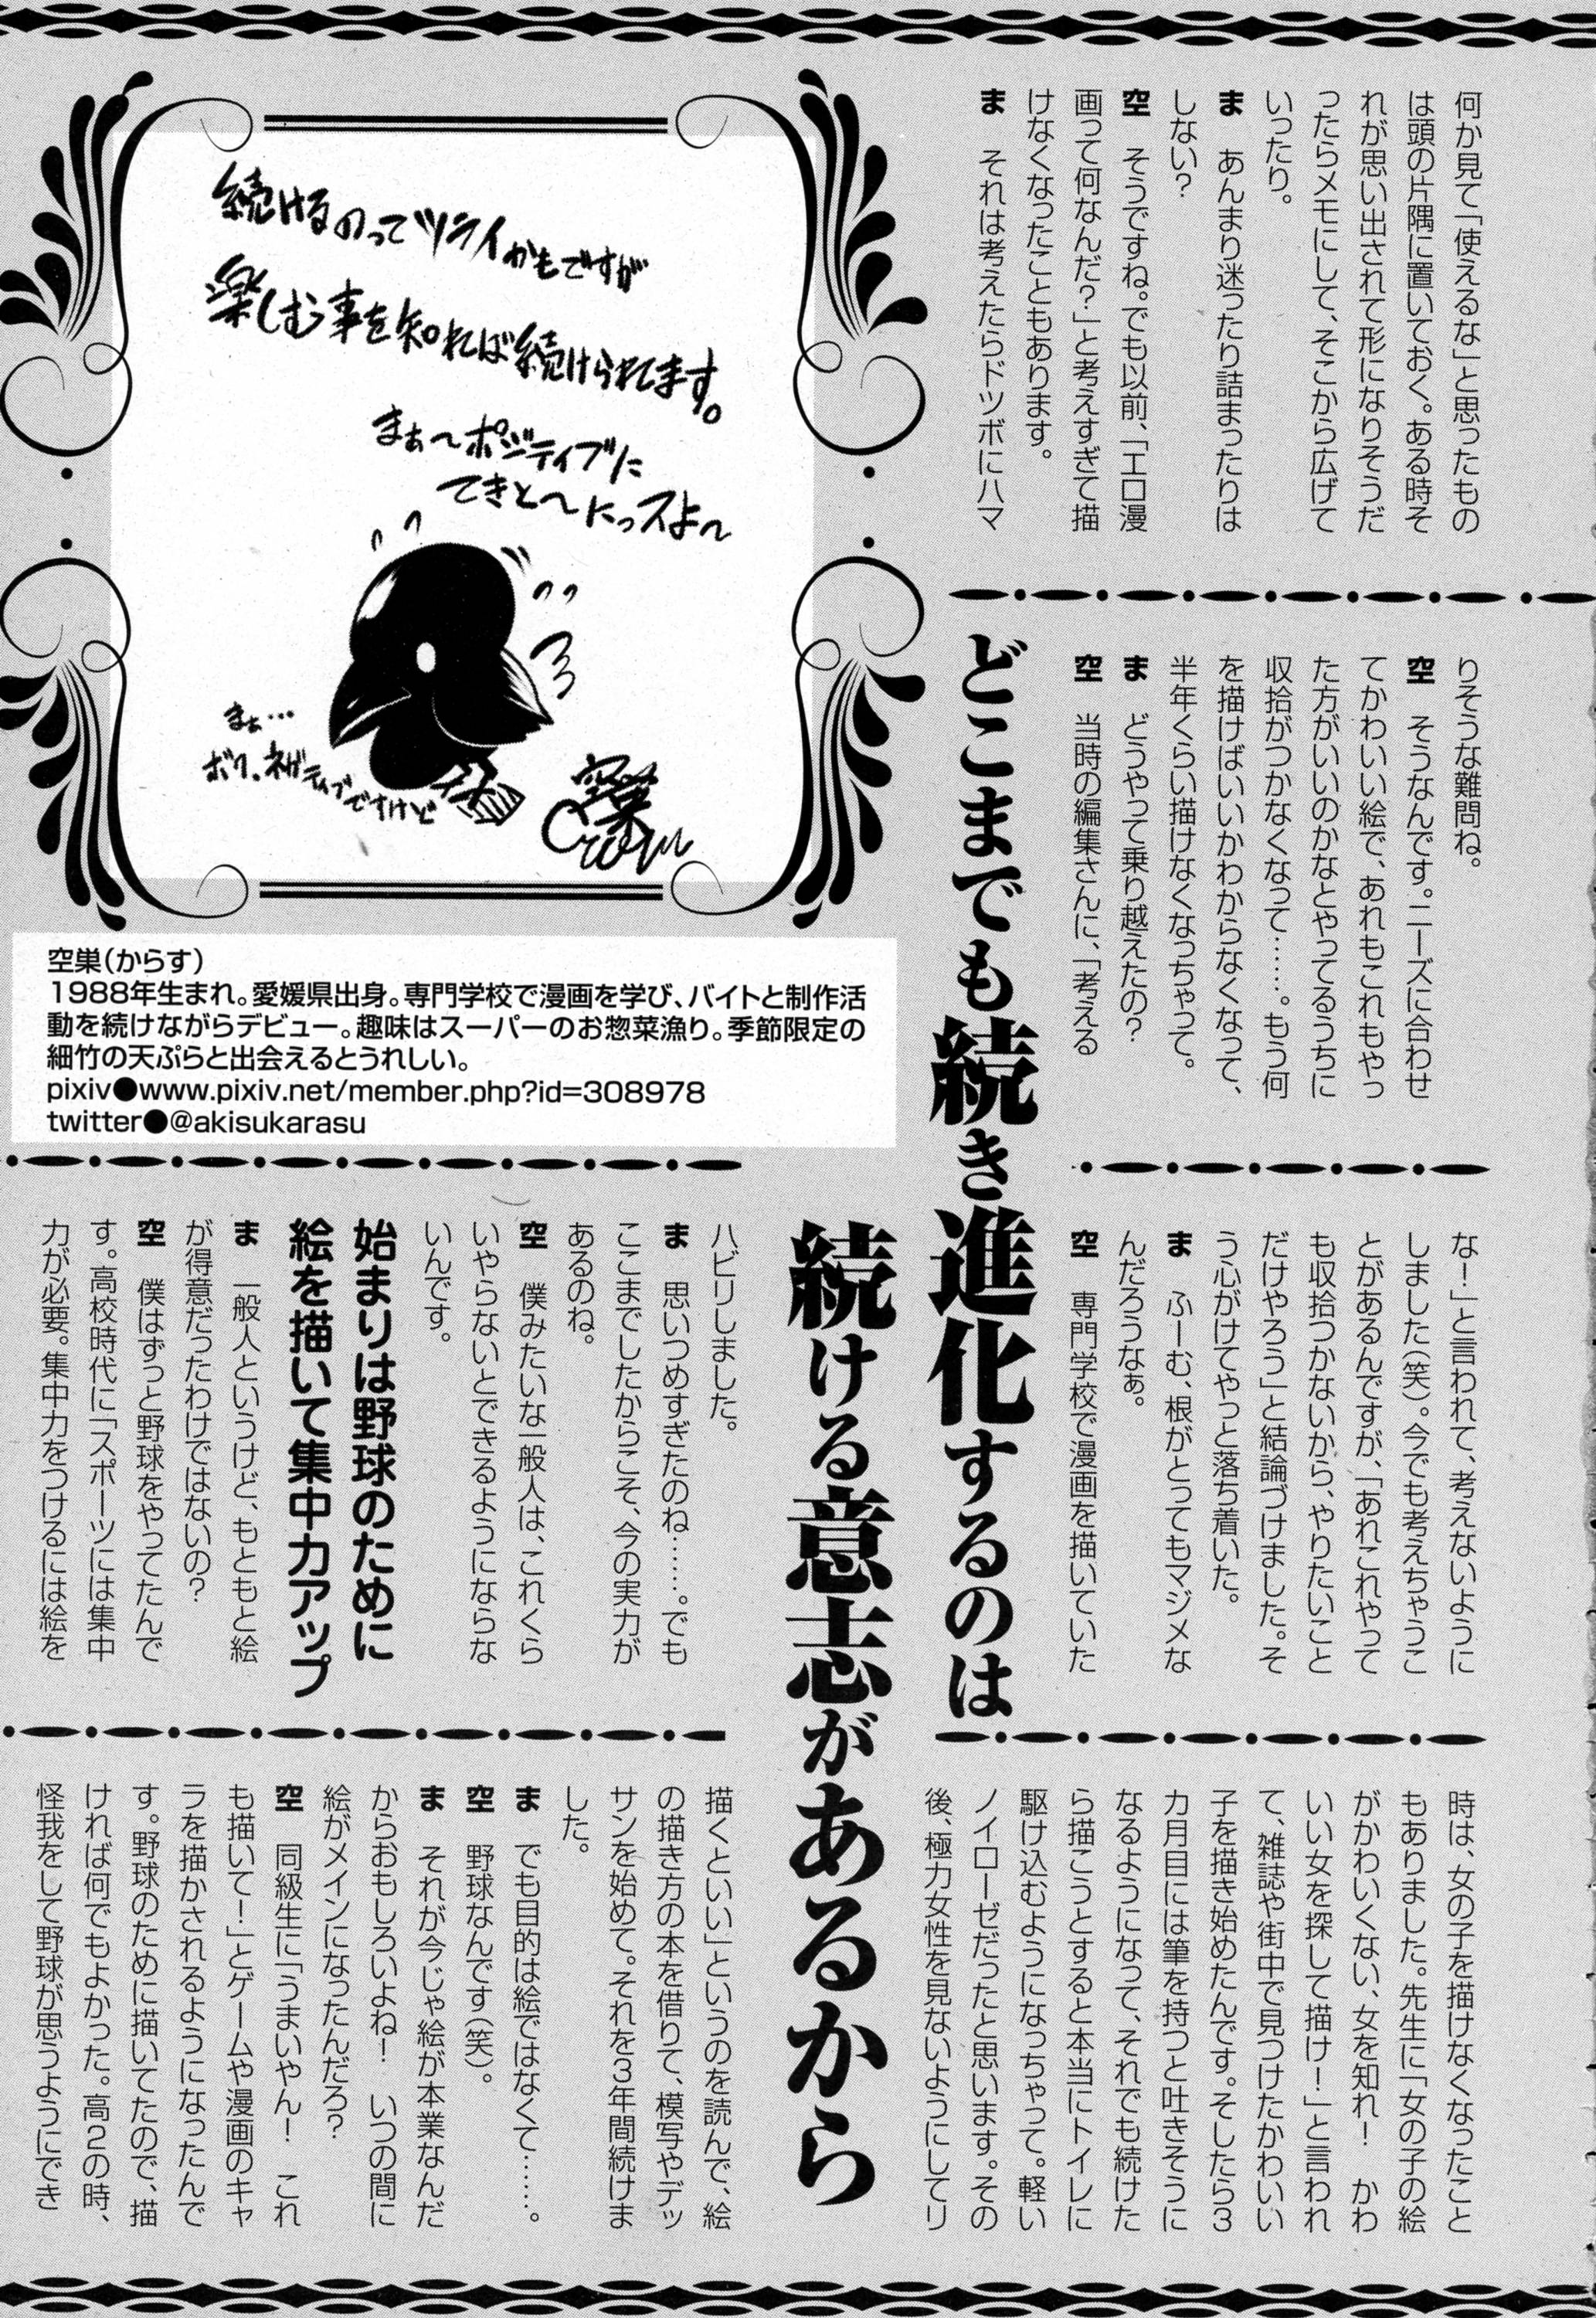 何か見て「使えるな」と思ったもの
は頭の片隅に置いておく。ある時そ
れが思い出されて形になりそうだ
ったらメモにして、そこから広げて
いったり。
ま　あんまり迷ったり詰まったりは
しない?
空　そうですね。でも以前、「エロ漫
画って何なんだ?」と考えすぎて描
けなくなったこともあります。
ま　それは考えたらドツボにハマ
りそうな難問ね。
空　そうなんです。ニーズに合わせ
てかわいい絵で、あれもこれもやっ
た方がいいのかなとやってるうちに
収拾がつかなくなって……。もう何
を描けばいいかわからなくなって、
半年くらい描けなくなっちゃって。
ま　どうやって乗り越えたの?
空　当時の編集さんに、「考える
な!」と言われて、考えないように
しました(笑)。今でも考えちゃうこ
とがあるんですが、「あれこれやって
も収拾つかないから、やりたいこと
だけやろう」と結論づけました。そ
う心がけてやっと落ち着いた。
ま　ふーむ、根がとってもマジメな
んだろうなぁ。
空　専門学校で漫画を描いていた
時は、女の子を描けなくなったこと
もありました。先生に「女の子の絵
がかわいくない、女を知れ!　かわ
いい女を探して描け!」と言われ
て、雑誌や街中で見つけたかわいい
子を描き始めたんです。そしたら3
カ月目には筆を持つと吐きそうに
なるようになって、それでも続けた
ら描こうとすると本当にトイレに
駆け込むようになっちゃって。軽い
ノイローゼだったと思います。その
後、極力女性を見ないようにしてリ
どこまでも続き進化するのは
続ける意志があるから
続けるのってツライかもですが
楽しむ事を知れば続けられてます。
まぁ〜ポジティブに
てきと〜にっスよ〜
まぁ…
ボク、ネガティブですけど
空巣
Crow
空巣(からす)
1988年生まれ。愛媛県出身。専門学校で漫画を学び、バイトと制作活
動を続けながらデビュー。趣味はスーパーのお惣菜漁り。季節限定の
細竹の天ぷらと出会えるとうれしい。
pixiv●www.pixiv.net/member.php?id=308978
twitter●@akisukarasu
ハビリしました。
ま　思いつめすぎたのね……。でも
ここまでしたからこそ、今の実力が
あるのね。
空　僕みたいな一般人は、これくら
いやらないとできるようにならな
いんです。
始まりは野球のために
絵を描いて集中力アップ
ま　一般人というけど、もともと絵
が得意だったわけではないの?
空　僕はずっと野球をやってたんで
す。高校時代に「スポーツには集中
力が必要。集中力をつけるには絵を
描くといい」というのを読んで、絵
の描き方の本を借りて、模写やデッ
サンを始めて。それを3年間続けま
した。
ま　でも目的は絵ではなくて……。
空　野球なんです(笑)。
ま　それが今じゃ絵が本業なんだ
からおもしろいよね!　いつの間に
絵がメインになったんだろ?
空　同級生に「うまいやん!　これ
も描いて!」とゲームや漫画のキャ
ラを描かされるようになったんで
す。野球のために描いてたので、描
ければ何でもよかった。高2の時、
怪我をして野球が思うようにでき